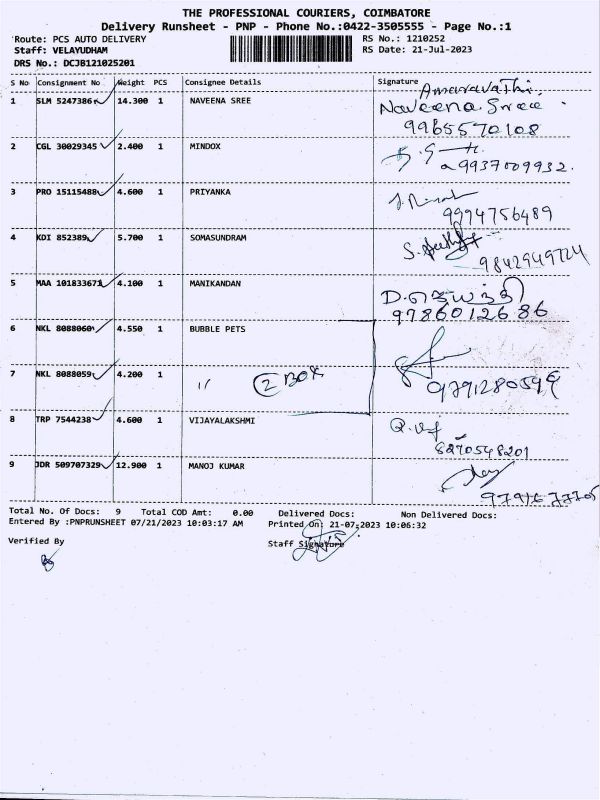 THE PROFESSIONAL COURIERS, COIMBATORE
Delivery Runsheet - PNP - Phone No.:0422-3505555 - Page No.:1
Route: PCS AUTO DELIVERY RS No.: 1210252
Staff: VELAYUDHAM RS Date: 21-Jul-2023
DRS No.: DCJB121025201
S No Consignment No Weight PCS Consignee Details Signature
Amaravathi
1 SLM 5247386 14.300 1 NAVEENA SREE Naveena Sree
9965570108
2 CGL 30029345 2.400 1 MINDOX
9937009932
3 PRO 15115488 4.600 1 PRIYANKA
9994756489
4 KDI 852389 5.700 1 SOMASUNDRAM
9842949724
5 MAA 101833671 4.100 1 MANIKANDAN D. ஜெயந்தி
9786012686
6 NKL 8088060 4.550 1 BUBBLE PETS
7 NKL 8088059 4.200 1 " 2 BOX
8 TRP 7544238 4.600 1 VIJAYALAKSHMI
8270548201
9 JDR 509707329 12.900 1 MANOJ KUMAR
Total No. Of Docs: 9 Total COD Amt: 0.00 Delivered Docs: Non Delivered Docs:
Entered By :PNPRUNSHEET 07/21/2023 10:03:17 AM Printed On: 21-07-2023 10:06:32
Verified By Staff Signature